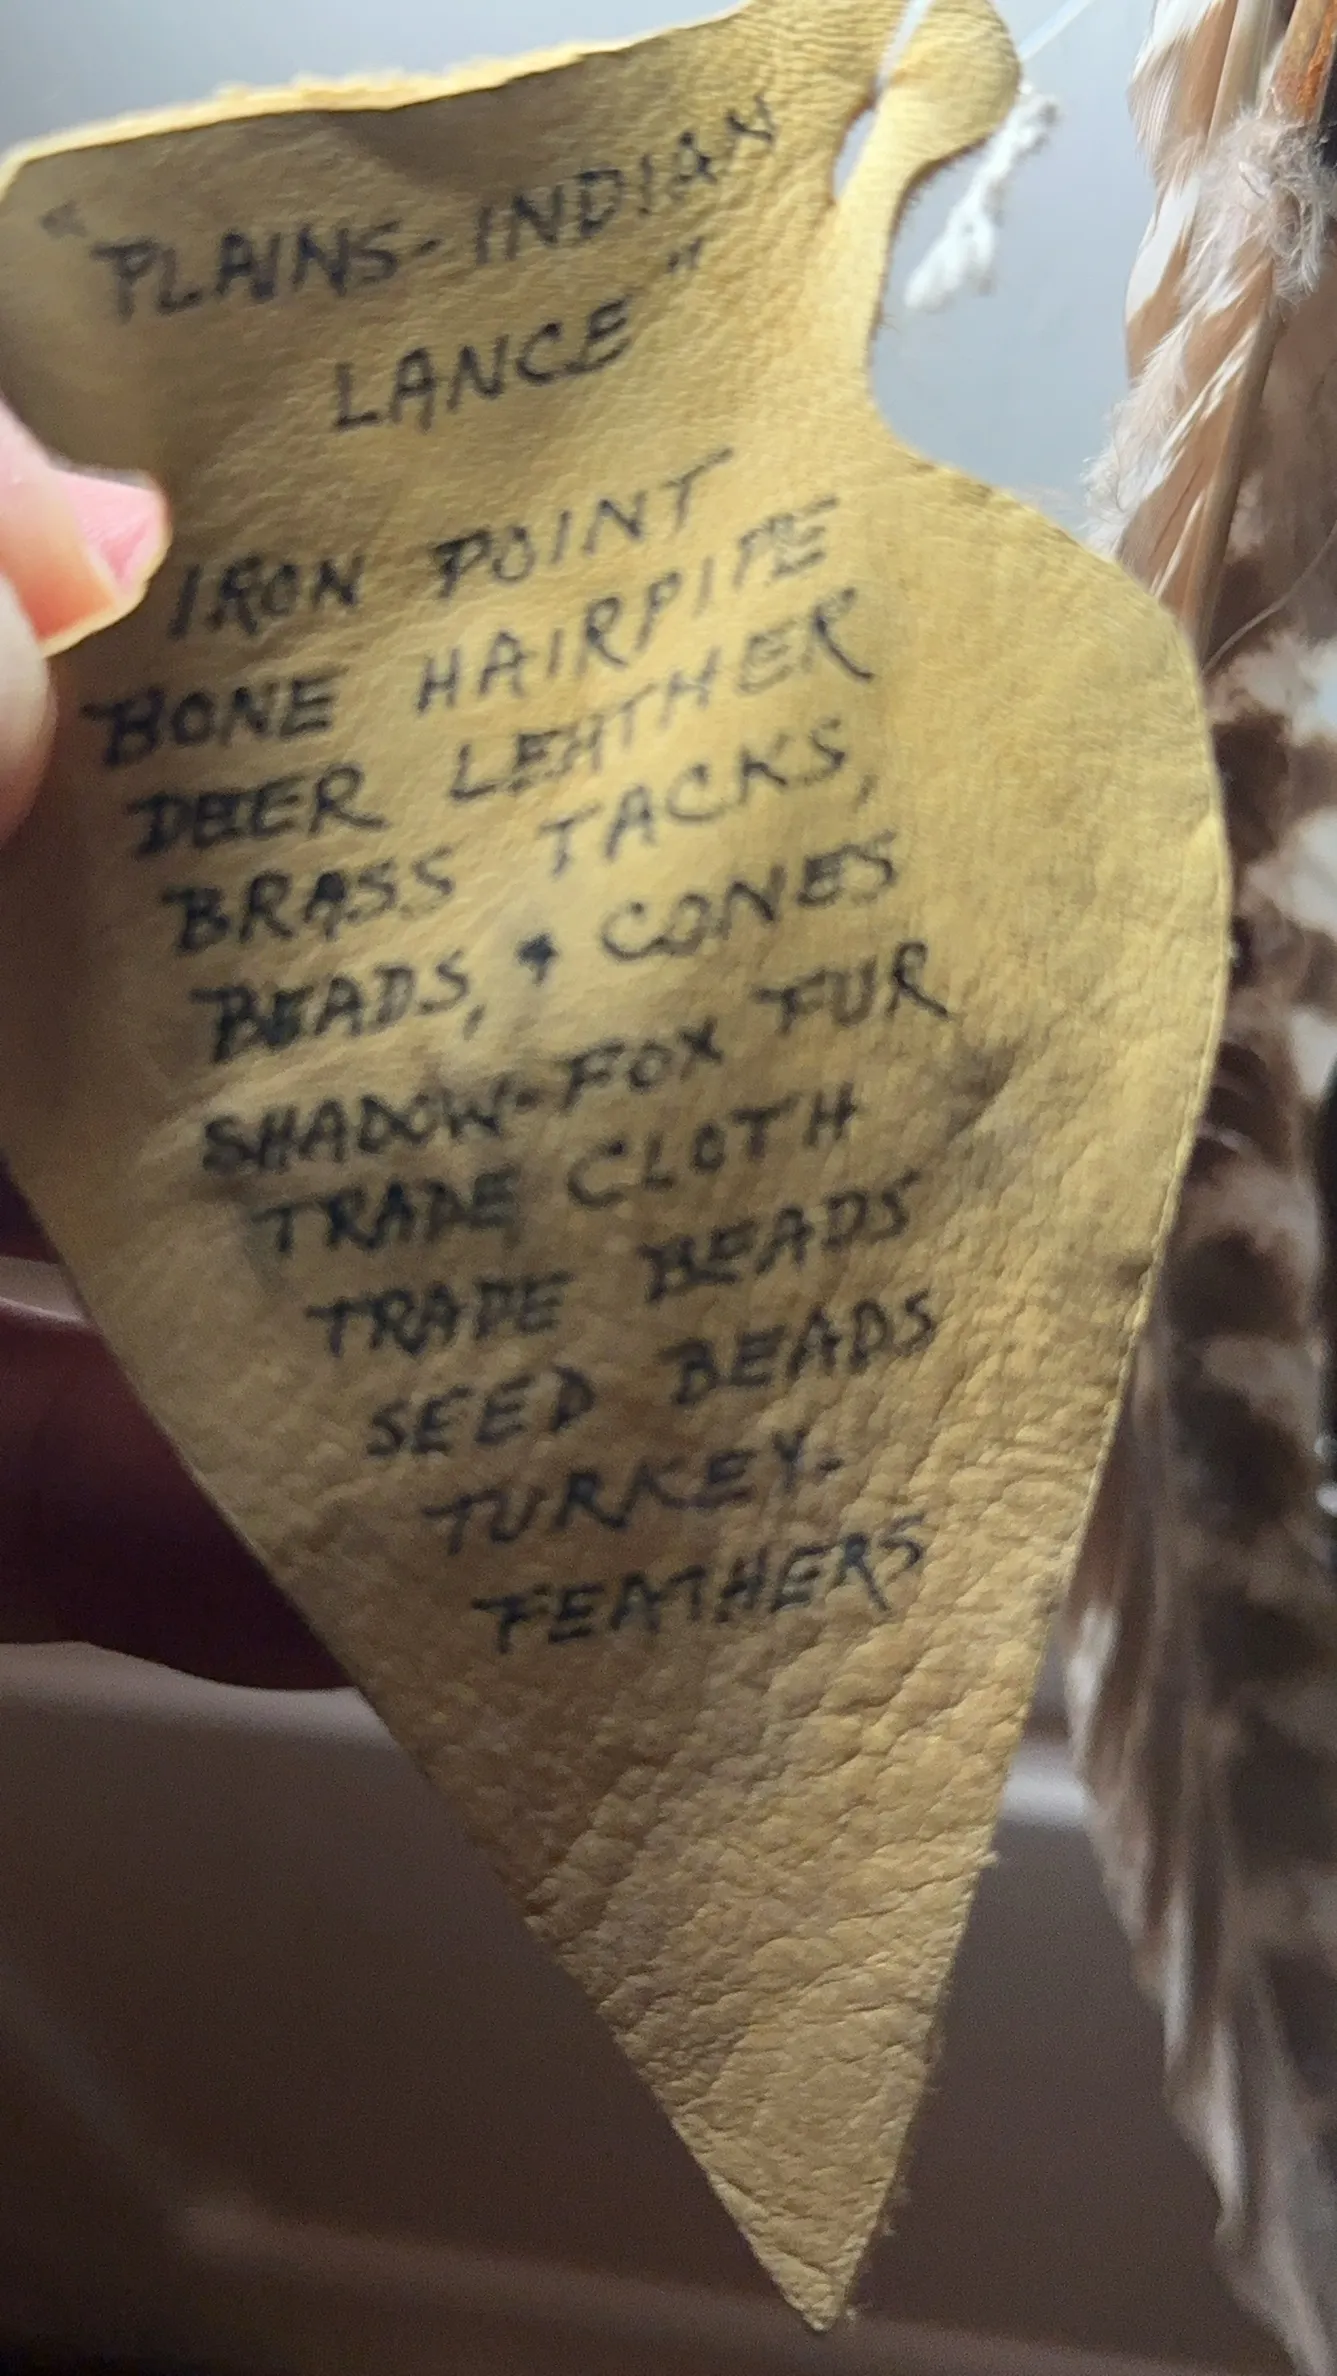 "PLAINS-INDIAN
LANCE"
IRON POINT
BONE HAIRPIPE
DEER LEATHER
BRASS TACKS,
BEADS, & CONES
SHADOW-FOX FUR
TRADE CLOTH
TRADE BEADS
SEED BEADS
TURKEY-
FEATHERS